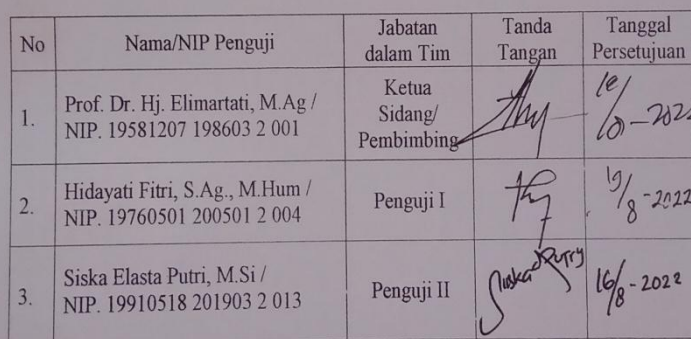 No
Nama/NIP Penguji
Jabatan
dalam Tim
Tanda
Tangan
Tanggal
Persetujuan
1.
Prof. Dr. Hj. Elimartati, M.Ag /
NIP. 19581207 198603 2 001
Ketua
Sidang/
Pembimbing
2.
Hidayati Fitri, S.Ag., M.Hum /
NIP. 19760501 200501 2 004
Penguji I
/8-2022
3.
Siska Elasta Putri, M.Si /
NIP. 19910518 201903 2 013
Penguji II
Siska Putry
16/8-2022